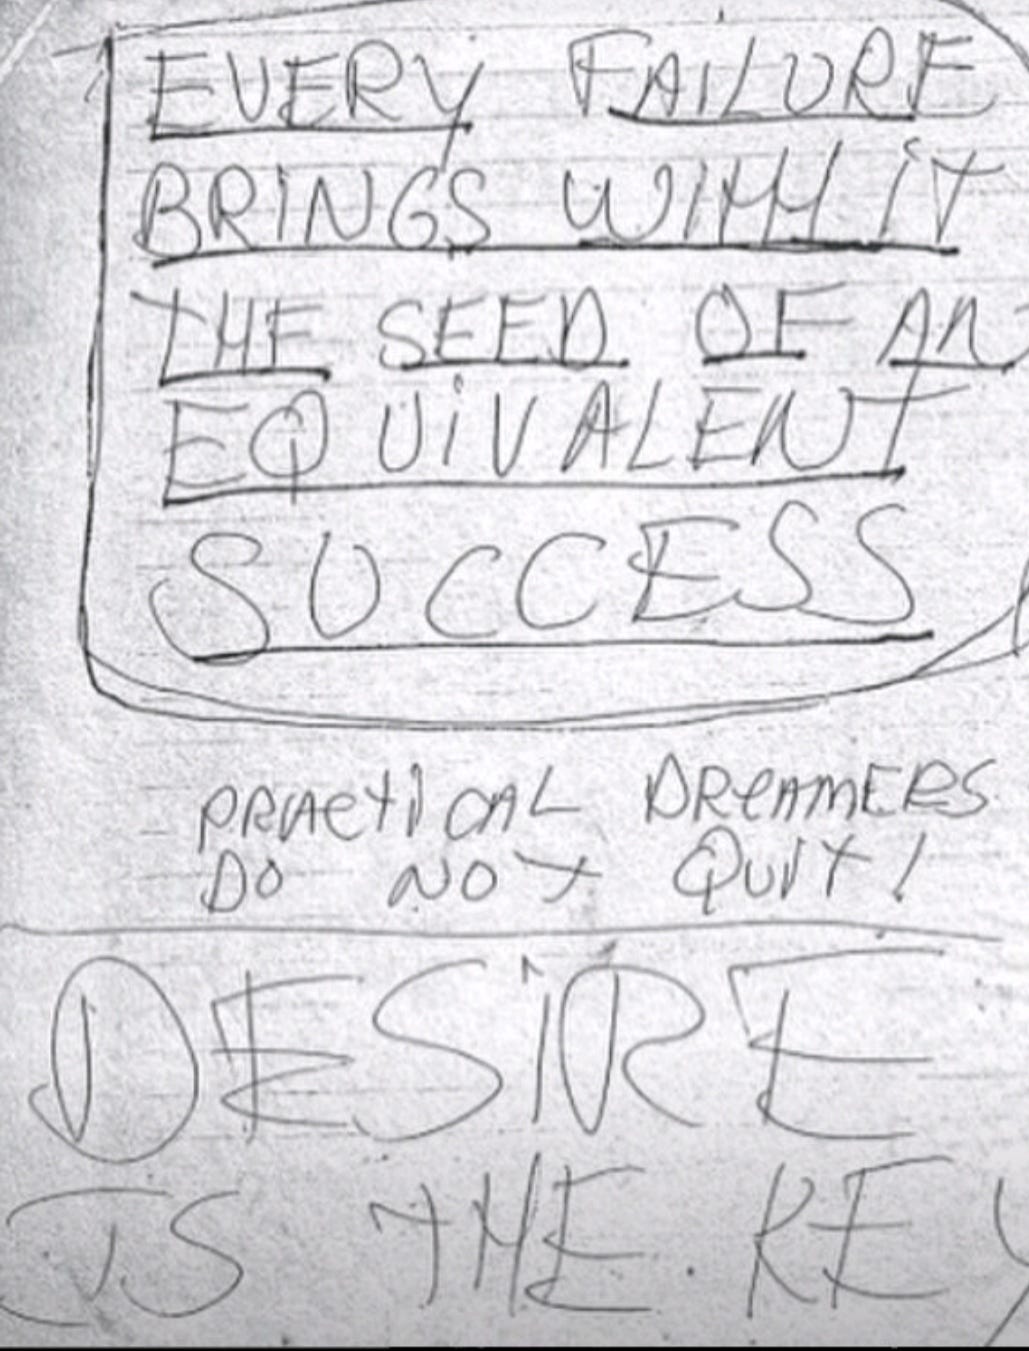 EVERY FAILURE
BRINGS WITH IT
THE SEED OF AN
EQUIVALENT
SUCCESS
PRACTICAL DREAMERS
DO NOT QUIT!
DESIRE
IS THE KEY